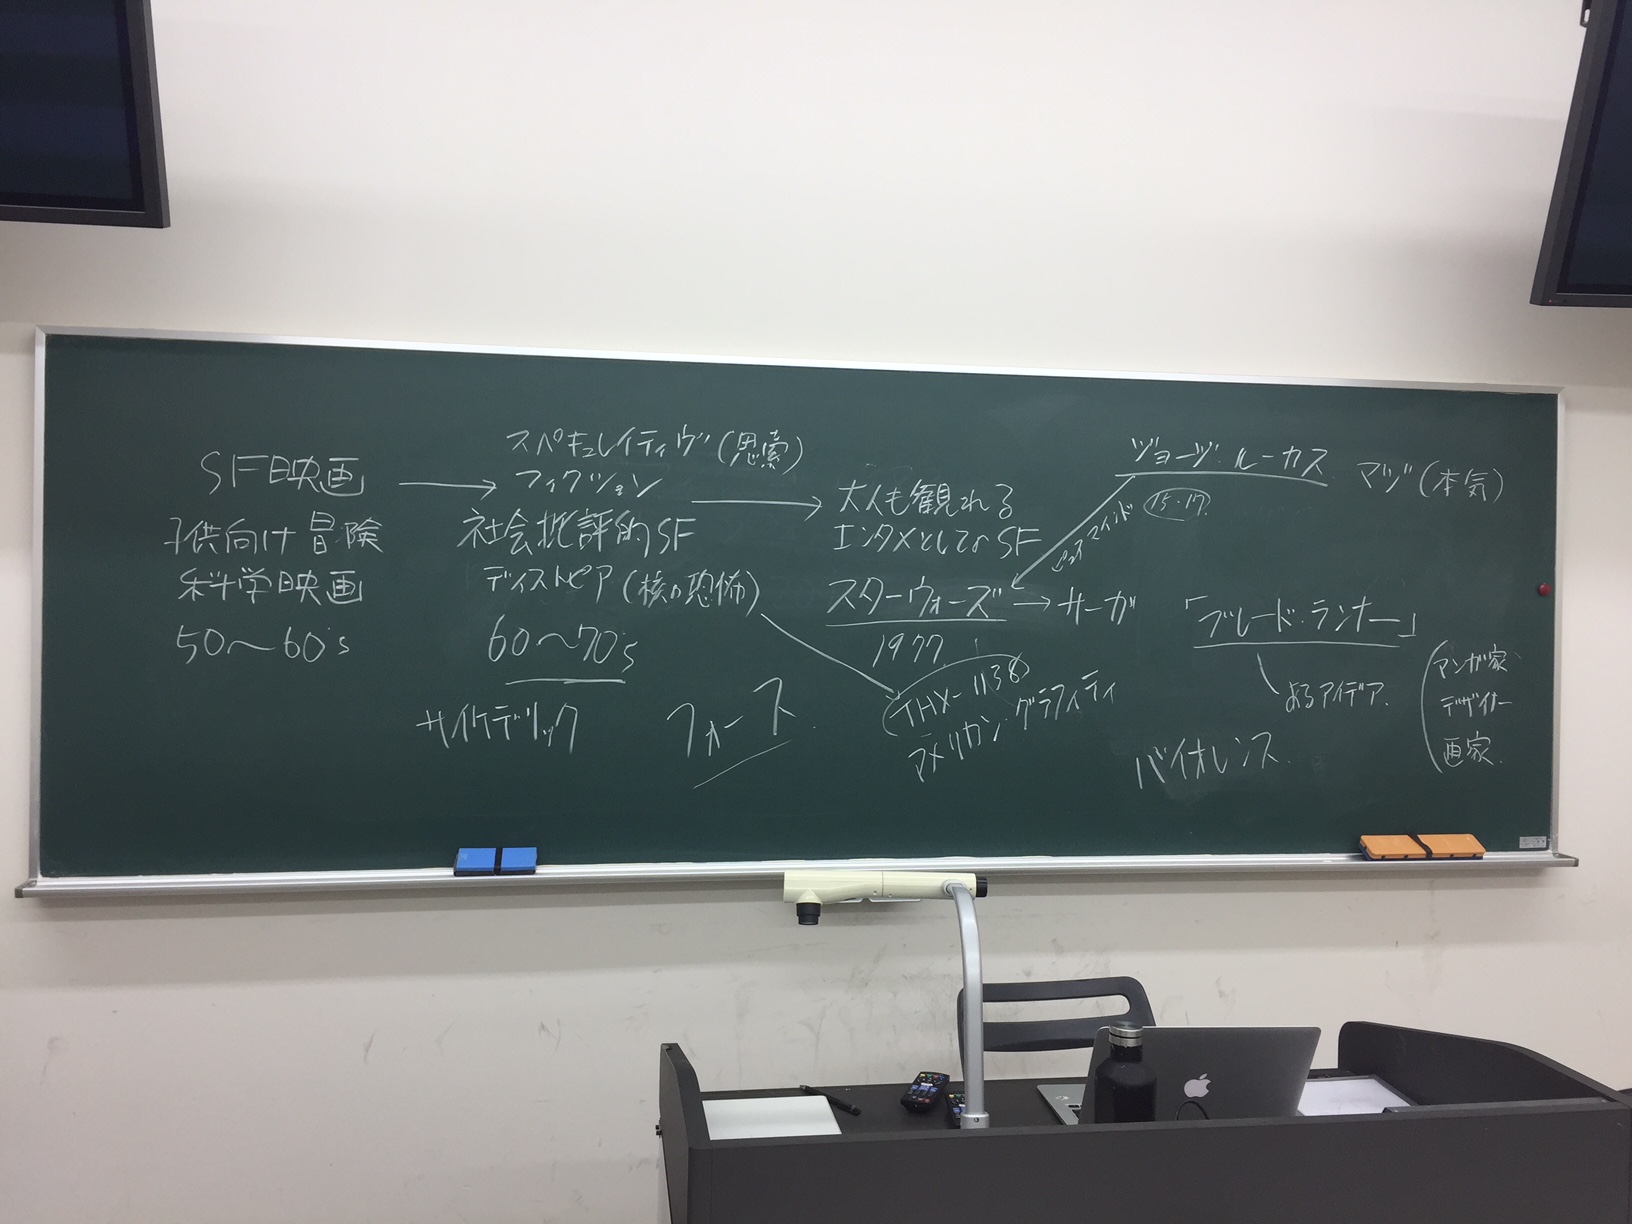 SF映画
子供向け冒険
科学映画
50〜60's
スペキュレイティヴ(思索)
フィクション
社会批評的SF
ディストピア(核の恐怖)
60〜70's
サイケデリック
フォース
大人も観れる
エンタメとしてのSF
スターウォーズ → サーガ
1977
THX-1138
アメリカン・グラフィティ
ジョージ・ルーカス
15・17
ピュアマインド
マジ(本気)
「ブレード・ランナー」
あるアイデア.
バイオレンス.
マンガ家
デザイナー
画家.